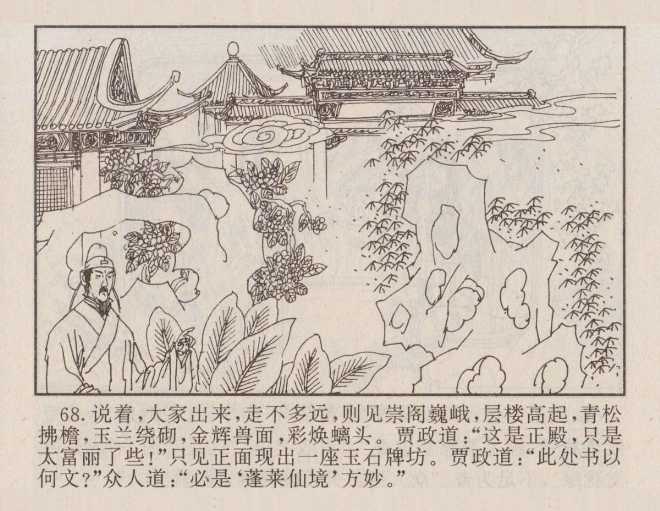 68. 说着，大家出来，走不多远，则见崇阁巍峨，层楼高起，青松
拂檐，玉兰绕砌，金辉兽面，彩焕螭头。贾政道：“这是正殿，只是
太富丽了些！”只见正面现出一座玉石牌坊。贾政道：“此处书以
何文？”众人道：“必是‘蓬莱仙境’方妙。”